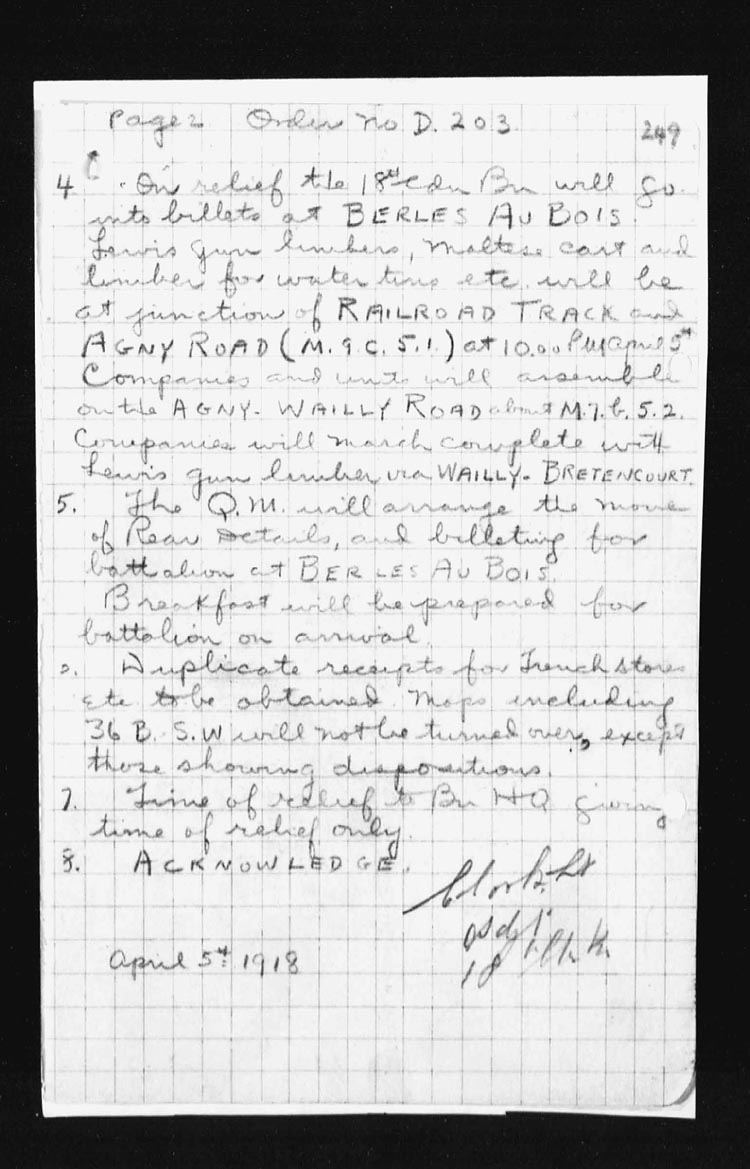 Page 2 Order No D. 203.
249
4 On relief the 18th Cdn Bn will go
into billets at BERLES AU BOIS.
Lewis gun limbers, maltese cart and
limber for water tins etc. will be
at junction of RAILROAD TRACK and
AGNY ROAD (M.9.C.5.1.) at 10.00 PM April 5th
Companies and units will assemble
on the AGNY-WAILLY ROAD about M.7.b.5.2.
Companies will march complete with
Lewis gun limber via WAILLY-BRETENCOURT.
5. The Q.M. will arrange the move
of Rear Details, and billeting for
battalion at BERLES AU BOIS.
Breakfast will be prepared for
battalion on arrival
Duplicate receipts for Trench stores
etc to be obtained. Maps including
36 B. S.W will not be turned over, except
those showing dispositions.
7. Time of relief to Bn HQ giving
time of relief only.
8. ACKNOWLEDGE.
Lt
18
April 5th 1918